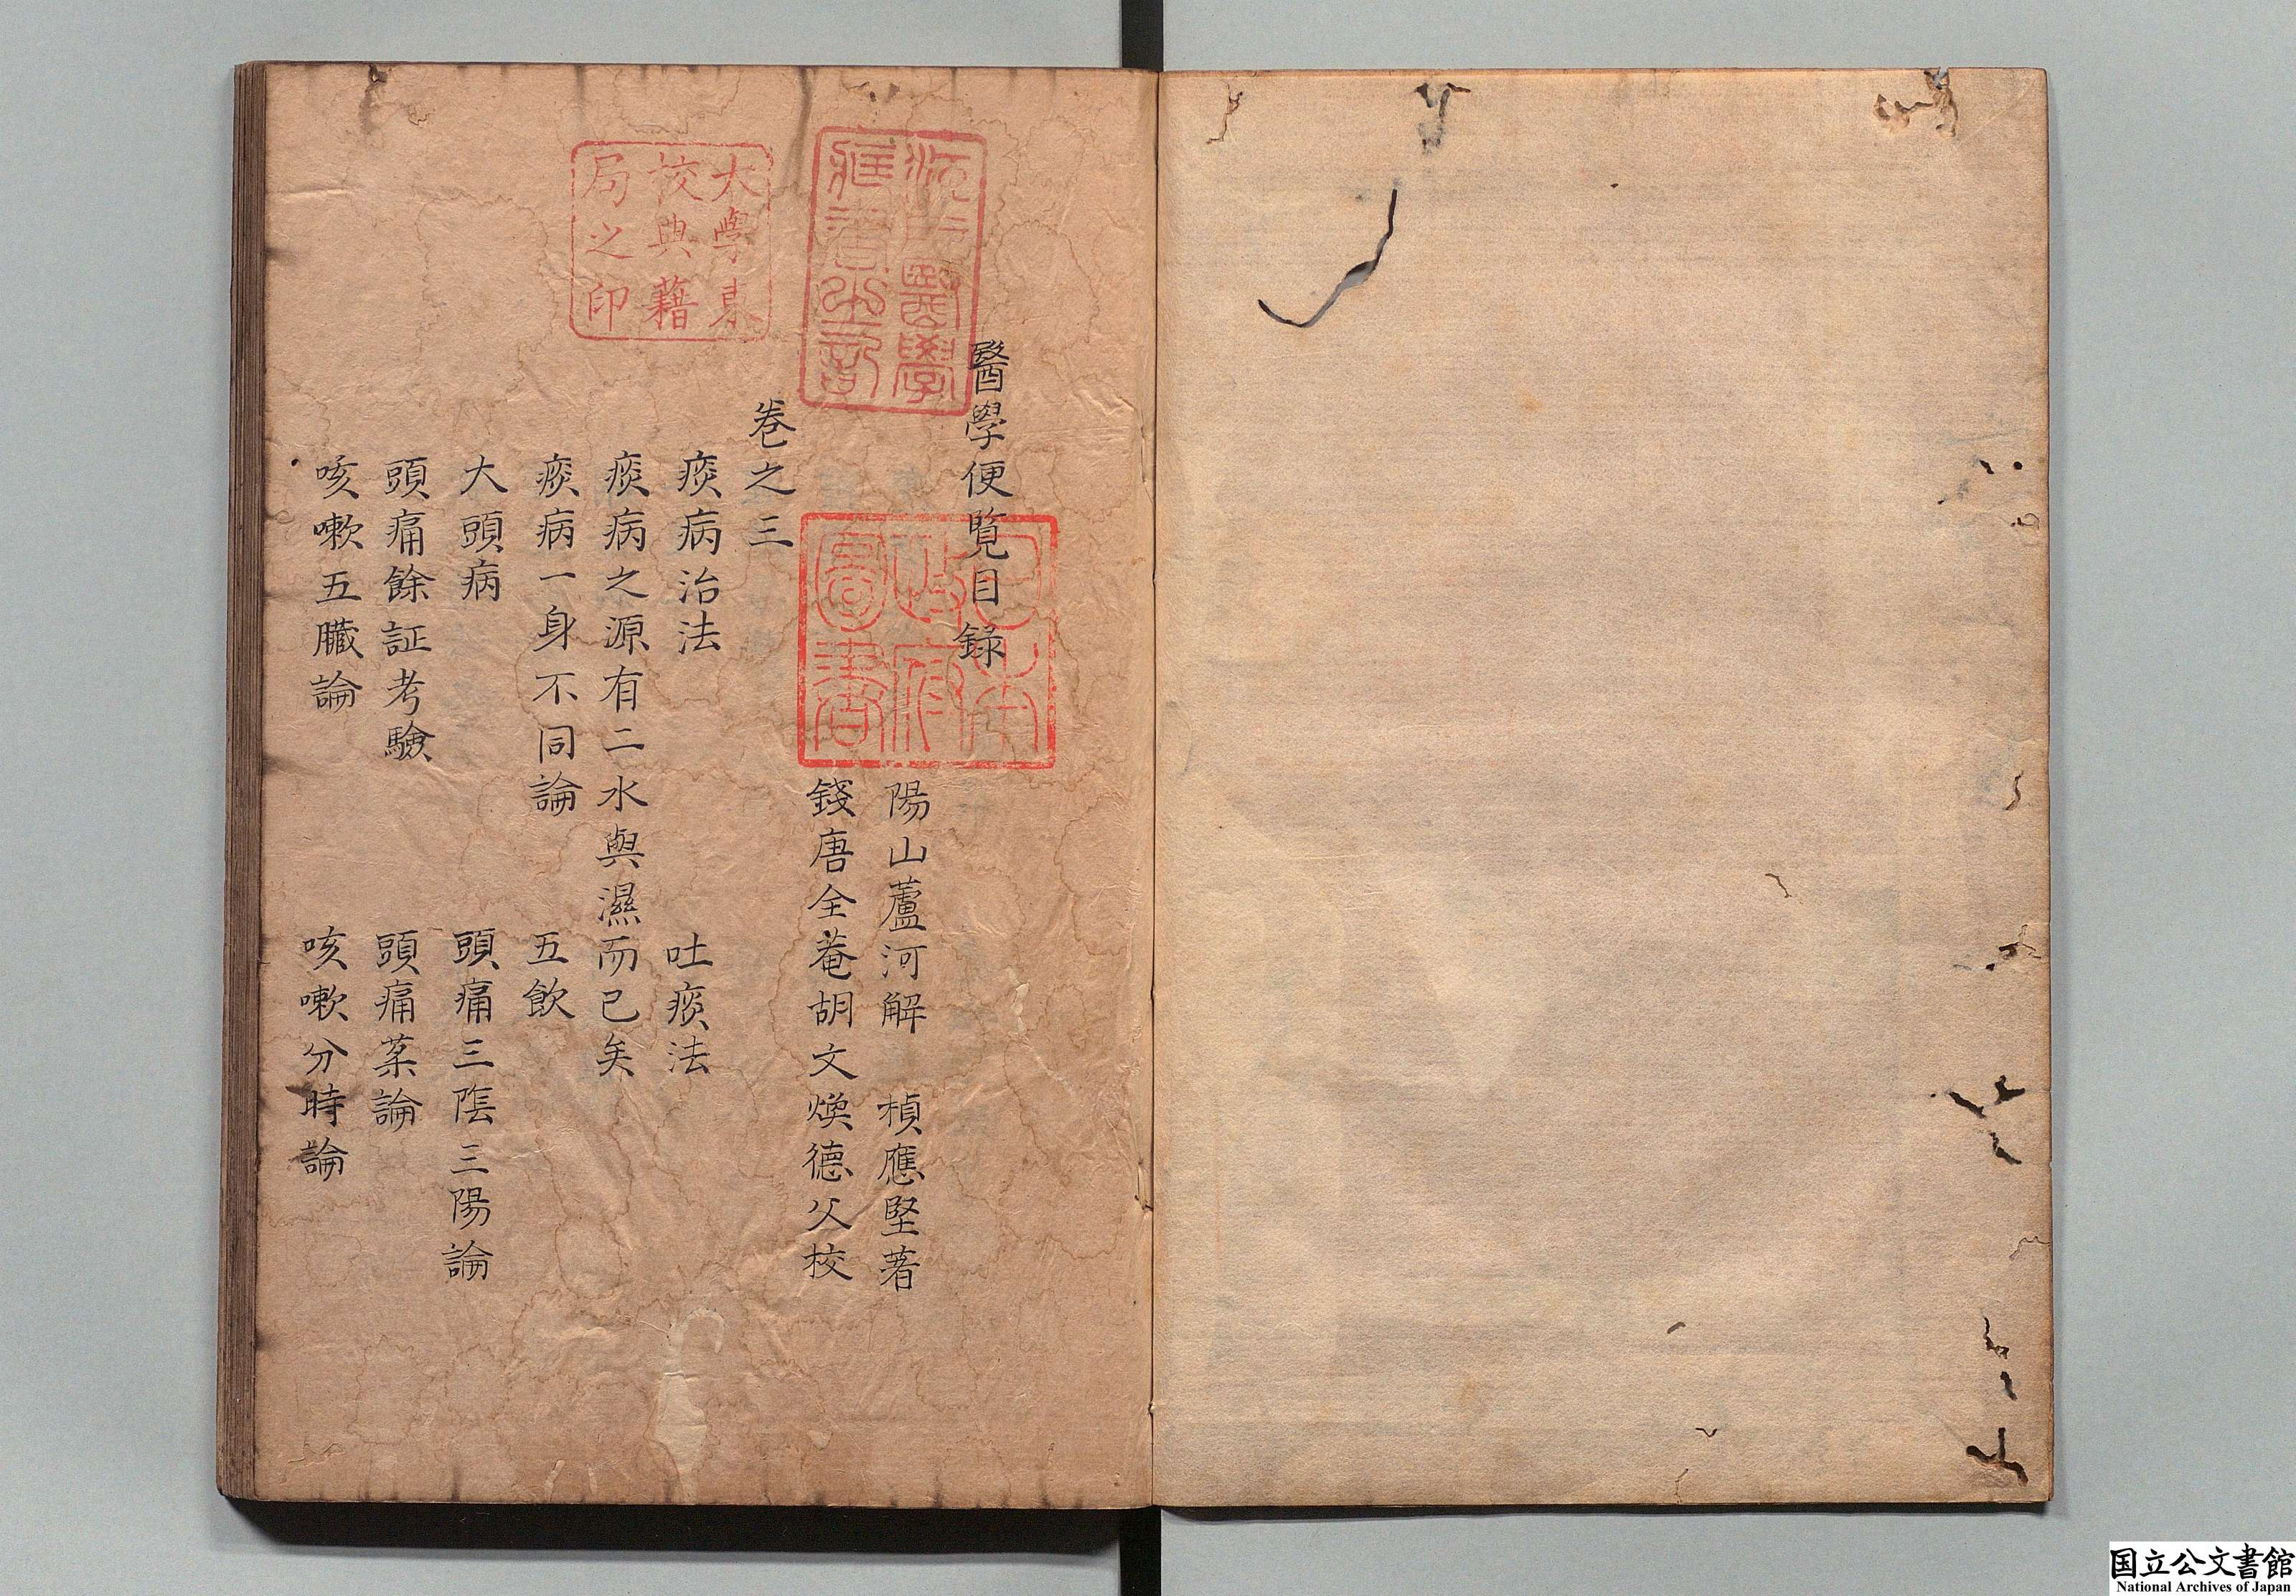 醫學便覧目録
陽山蘆河解　楨應堅著
錢唐全菴胡文煥德父校
卷之三
痰病治法　吐痰法
痰病之源有二水與濕而已矣
痰病一身不同論　五飲
大頭病　頭痛三陰三陽論
頭痛餘証考驗　頭痛藥論
咳嗽五臟論　咳嗽分時論
大學東
校典籍
局之印
日本
政府
圖書
国立公文書館
National Archives of Japan